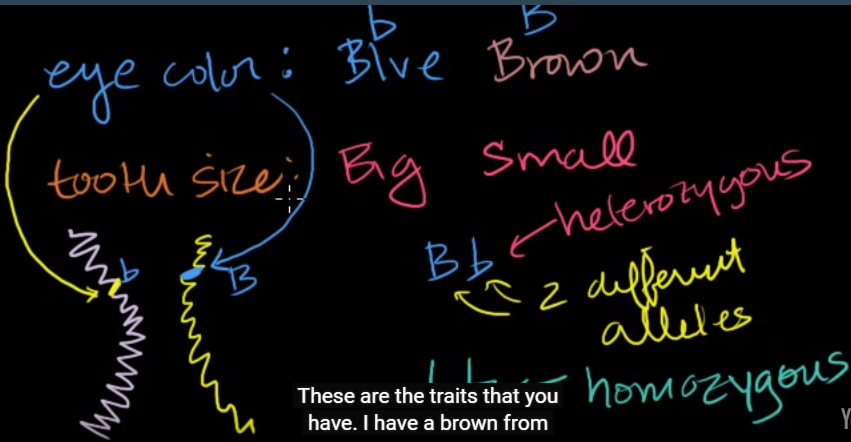 b B
eye color: Blue Brown
tooth size: Big Small
heterozygous
b B Bb
2 different
alleles
homozygous
These are the traits that you
have. I have a brown from